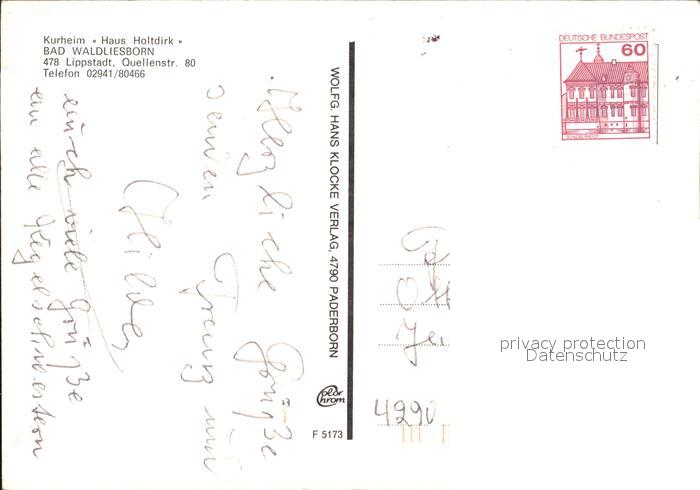 Kurheim « Haus Holtdirk »
BAD WALDLIESBORN
478 Lippstadt, Quellenstr. 80
Telefon 02941/80466
Herzliche Grüße
senden Franz und
Hilde
auch viele Grüße
an alle Kegelschwestern
WOLFG. HANS KLOCKE VERLAG, 4790 PADERBORN
color chrom
F 5173
DEUTSCHE BUNDESPOST
60
4290
privacy protection
Datenschutz